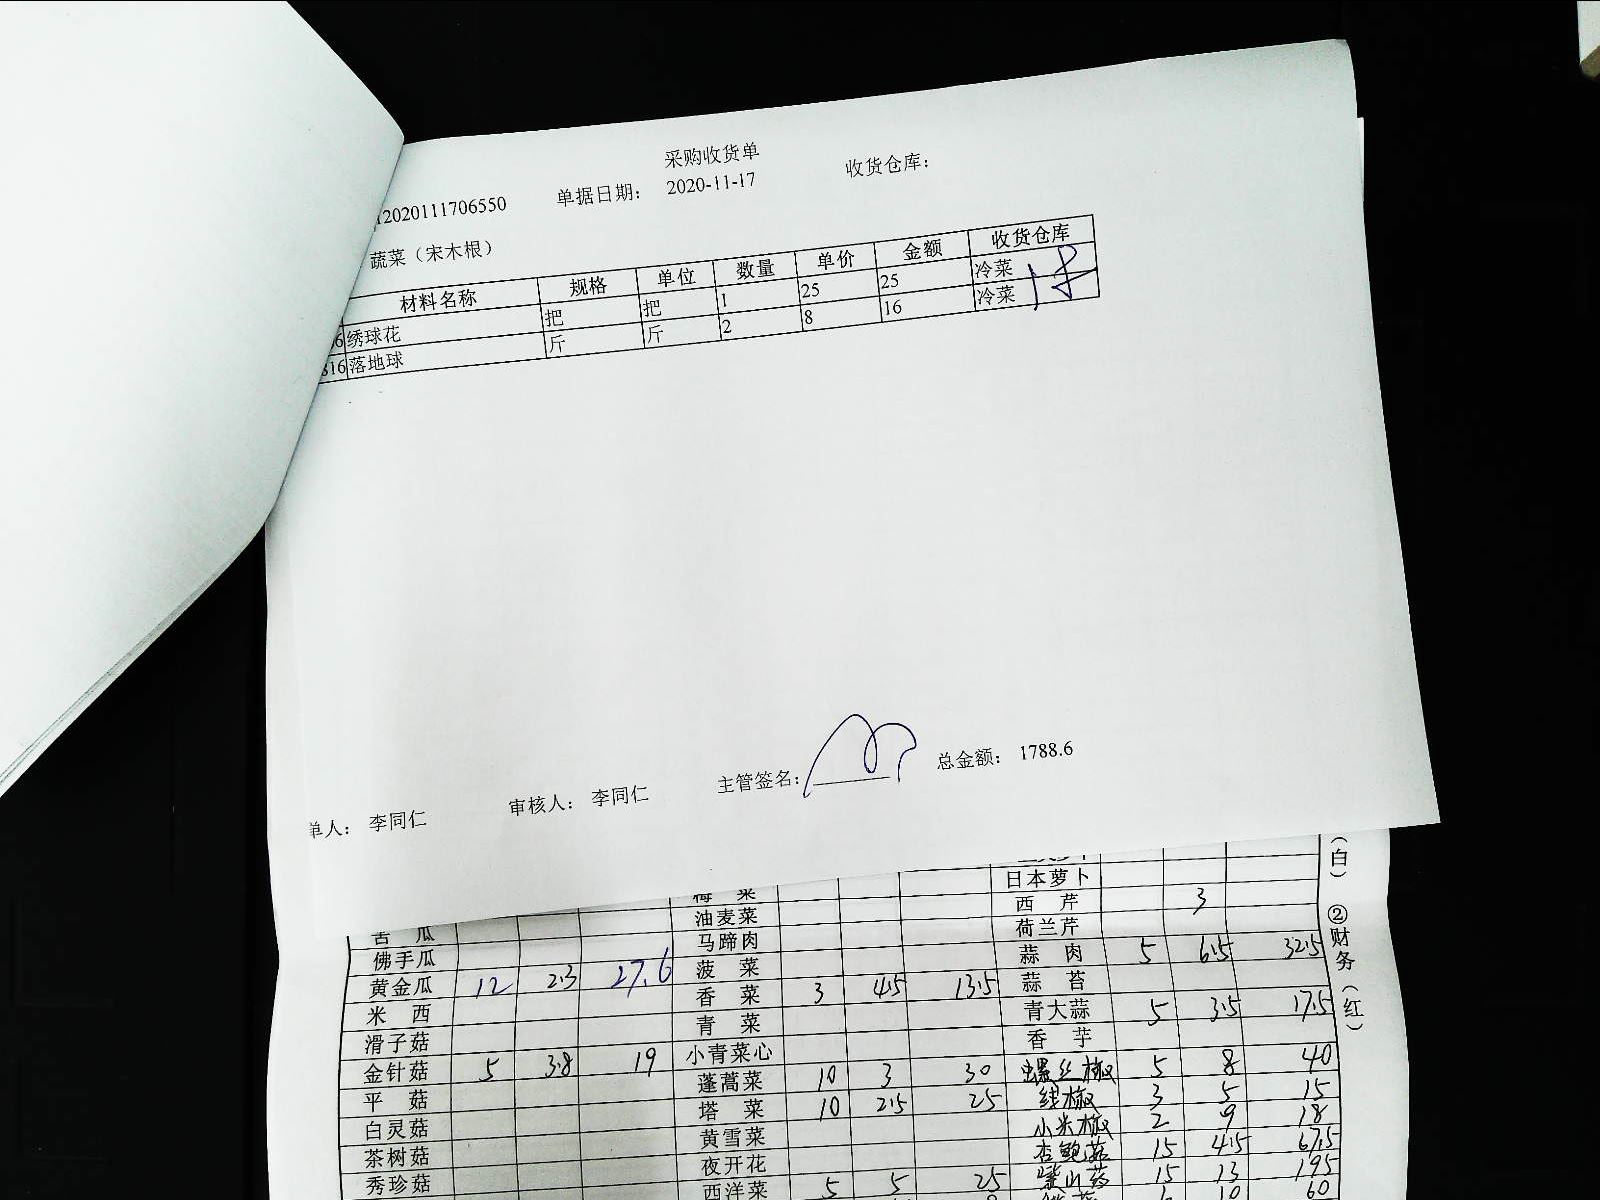 采购收货单
12020111706550 单据日期： 2020-11-17 收货仓库：
蔬菜（宋木根）
材料名称 规格 单位 数量 单价 金额 收货仓库
6 绣球花 把 把 1 25 25 冷菜
816 落地球 斤 斤 2 8 16 冷菜
单人： 李同仁 审核人： 李同仁 主管签名： 总金额： 1788.6
日本萝卜
梅 菜 西 芹 3
油麦菜 荷兰芹
苦 瓜 马蹄肉 蒜 肉 5 6.5 32.5
佛手瓜 菠 菜 蒜 苔
黄金瓜 12 2.3 27.6 香 菜 3 4.5 13.5 青大蒜 5 3.5 17.5
米 西 青 菜 香 芋
滑子菇 小青菜心 螺丝椒 5 8 40
金针菇 5 3.8 19 蓬蒿菜 10 3 30 线椒 3 5 15
平 菇 塔 菜 10 2.5 25 小米椒 2 9 18
白灵菇 黄雪菜 杏鲍菇 15 4.5 67.5
茶树菇 夜开花 紫山药 15 13 195
秀珍菇 西洋菜 5 5 25 10 60
（白） ②财务（红）